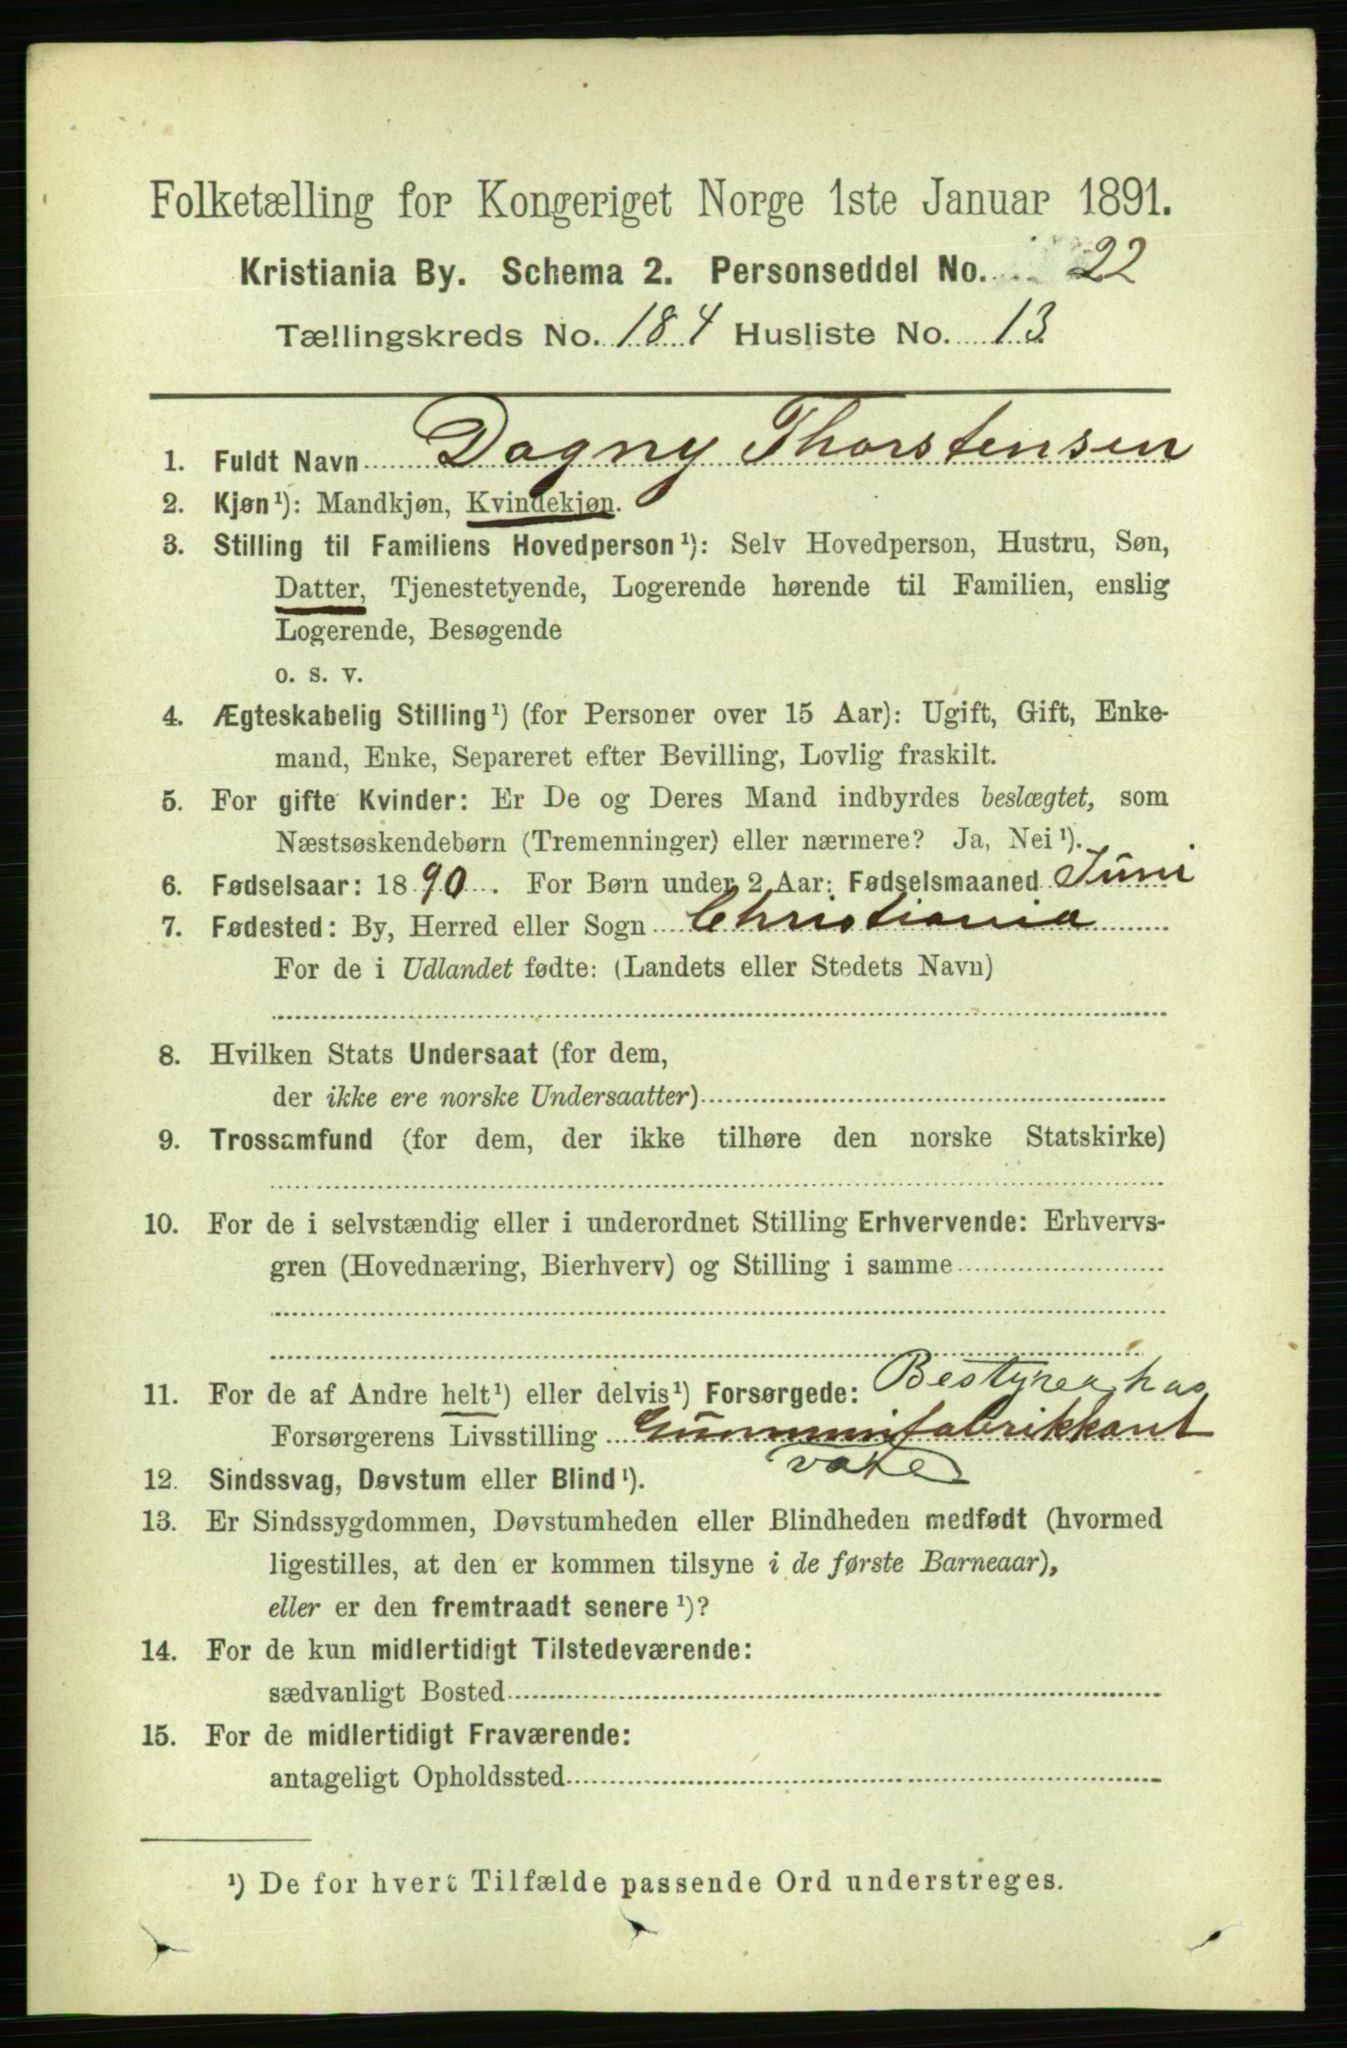 Folketælling for Kongeriget Norge 1ste Januar 1891.
Kristiania By. Schema 2. Personseddel No. 22
Tællingskreds No. 184 Husliste No. 13
1. Fuldt Navn Dagny Thorstensen
2. Kjøn¹): Mandkjøn, Kvindekjøn.
3. Stilling til Familiens Hovedperson¹): Selv Hovedperson, Hustru, Søn,
Datter, Tjenestetyende, Logerende hørende til Familien, enslig
Logerende, Besøgende
o. s. v.
4. Ægteskabelig Stilling¹) (for Personer over 15 Aar): Ugift, Gift, Enke-
mand, Enke, Separeret efter Bevilling, Lovlig fraskilt.
5. For gifte Kvinder: Er De og Deres Mand indbyrdes beslægtet, som
Næstsøskendebørn (Tremenninger) eller nærmere? Ja, Nei¹).
6. Fødselsaar: 1890. For Børn under 2 Aar: Fødselsmaaned Juni
7. Fødested: By, Herred eller Sogn Christiania
For de i Udlandet fødte: (Landets eller Stedets Navn)
8. Hvilken Stats Undersaat (for dem,
der ikke ere norske Undersaatter)
9. Trossamfund (for dem, der ikke tilhøre den norske Statskirke)
10. For de i selvstændig eller i underordnet Stilling Erhvervende: Erhvervs-
gren (Hovednæring, Bierhverv) og Stilling i samme
11. For de af Andre helt¹) eller delvis¹) Forsørgede: Bestyrer hos
Forsørgerens Livsstilling Gummifabrikkant
12. Sindssvag, Døvstum eller Blind¹).
13. Er Sindssygdommen, Døvstumheden eller Blindheden medfødt (hvormed
ligestilles, at den er kommen tilsyne i de første Barneaar),
eller er den fremtraadt senere¹)?
14. For de kun midlertidigt Tilstedeværende:
sædvanligt Bosted
15. For de midlertidigt Fraværende:
antageligt Opholdssted
¹) De for hvert Tilfælde passende Ord understreges.